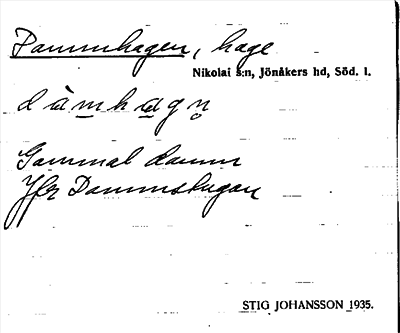 Dammhagen, hage
Nikolai s:n, Jönåkers hd, Söd. l.
dàmhagn̥
Gammal damm
Jfr Dammstugan
STIG JOHANSSON 1935.